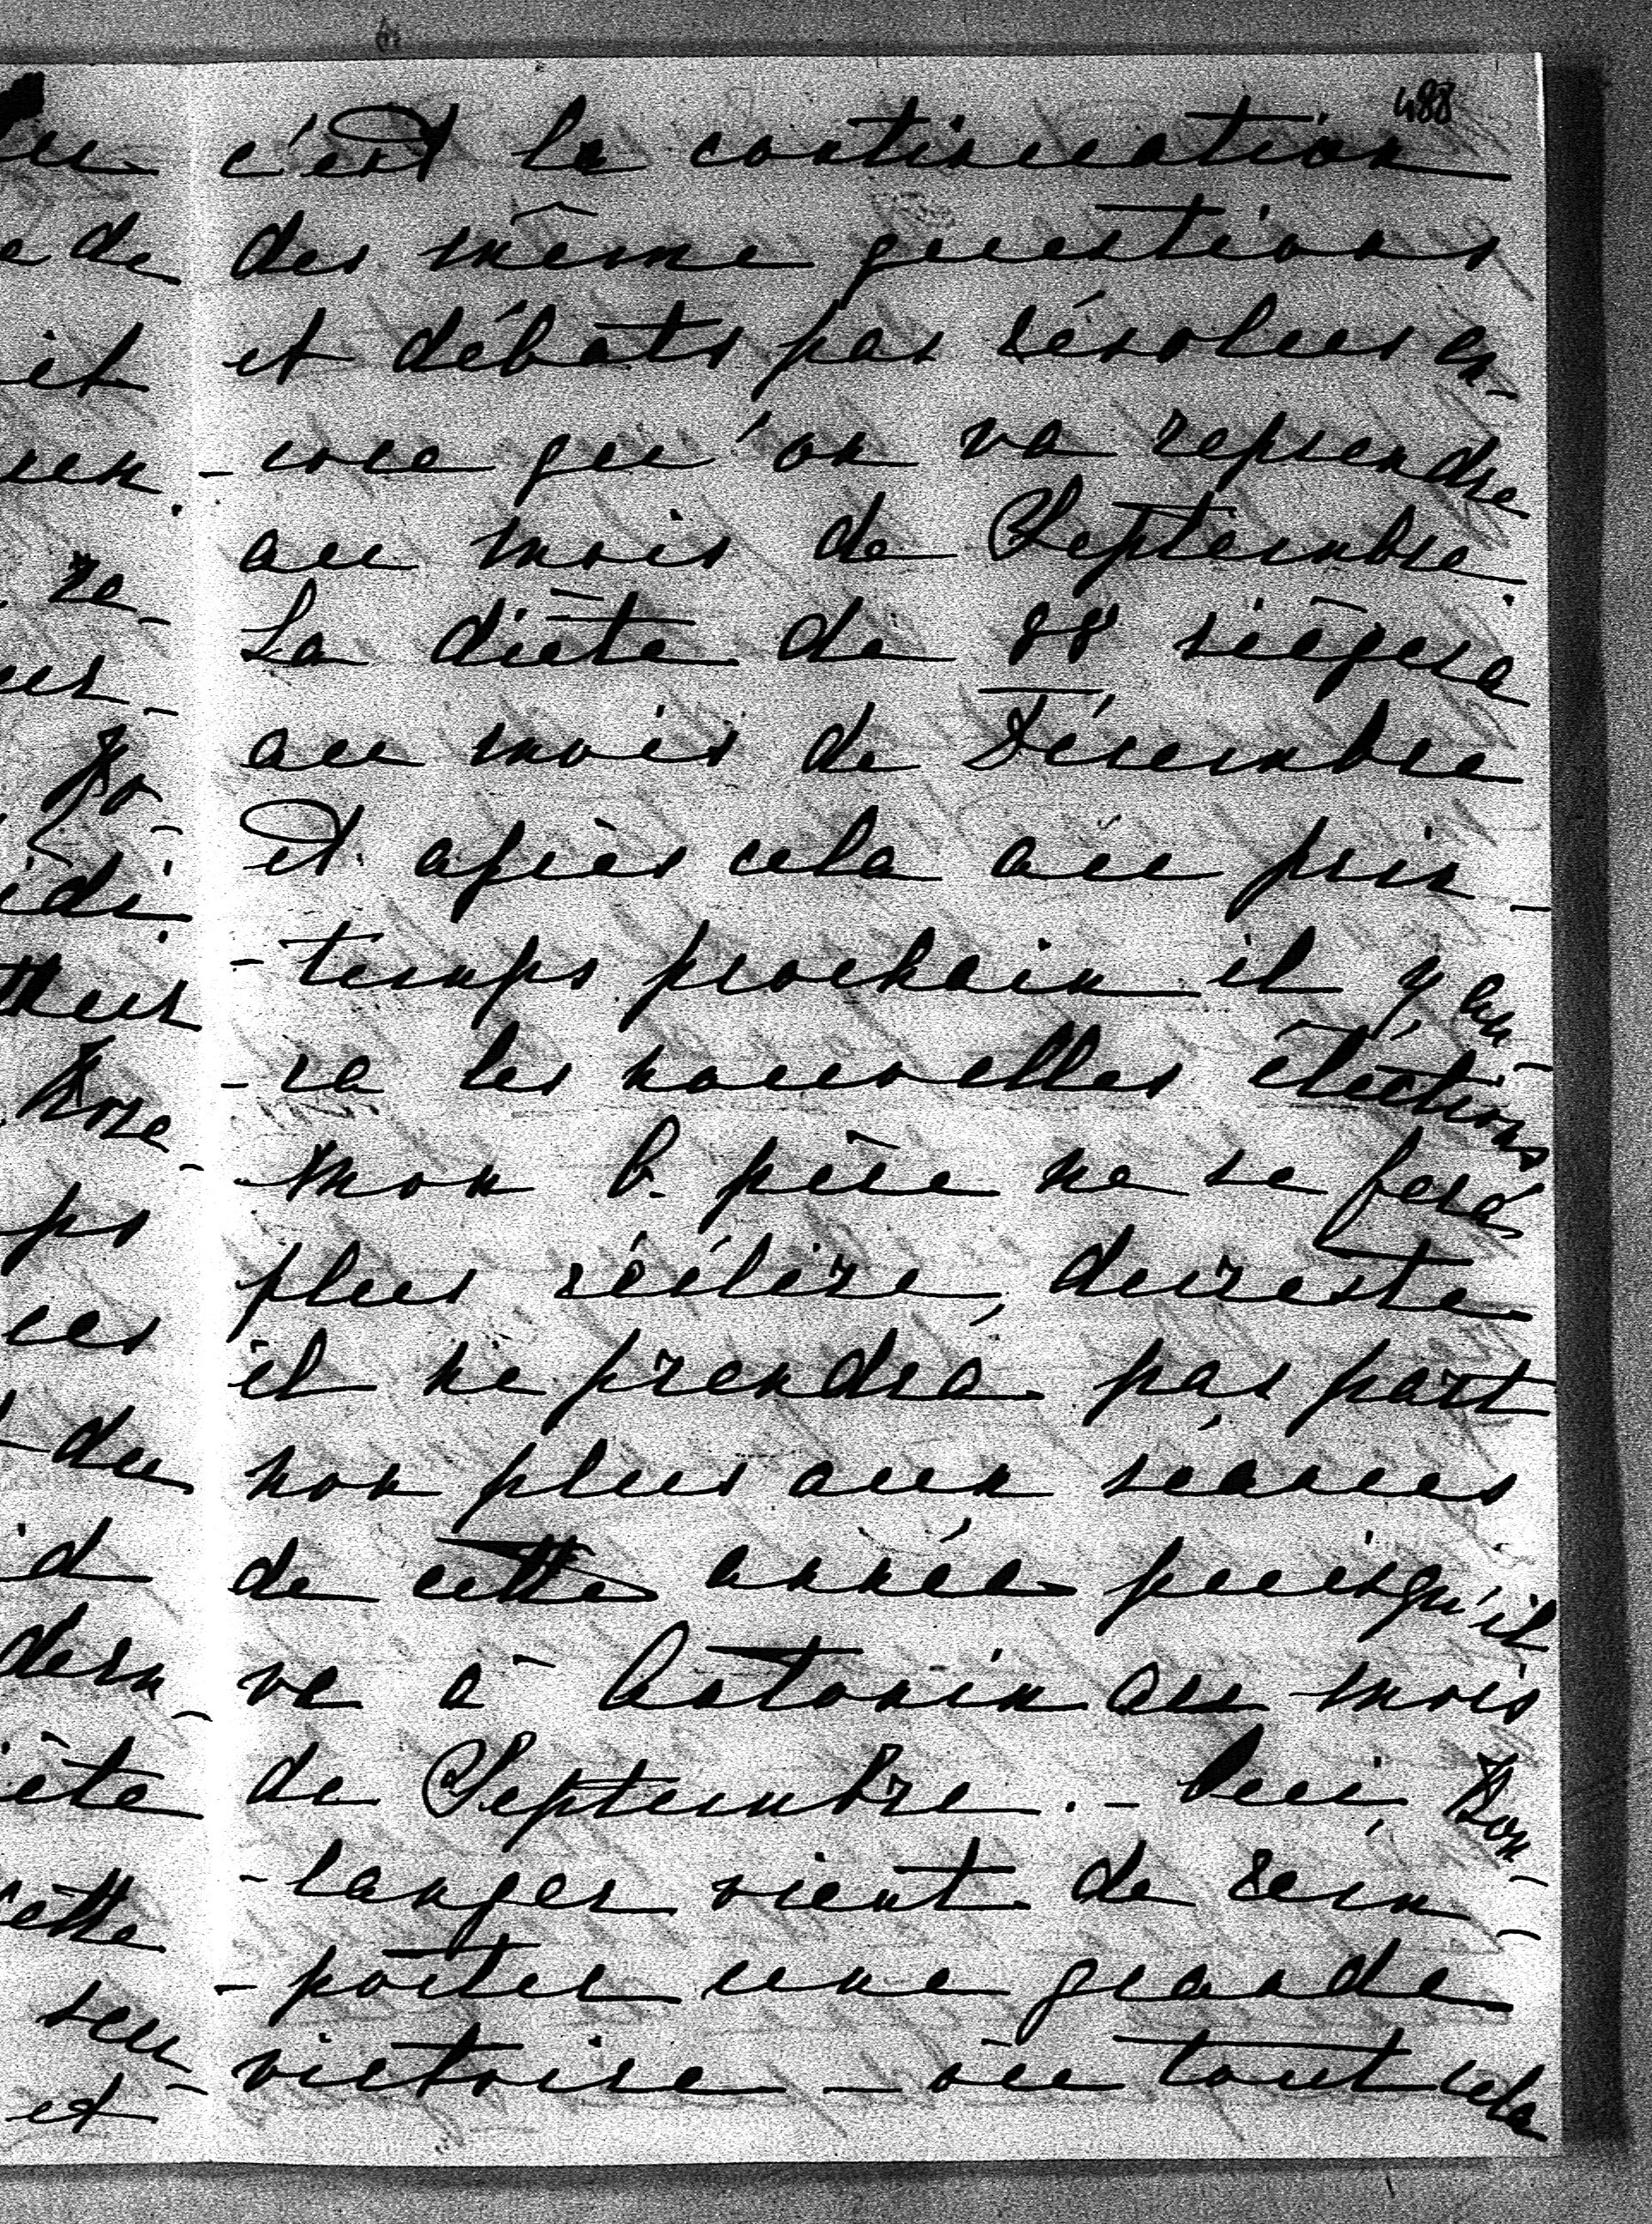 488
c'est la continuation
des même questions
et débats pas résolues en-
-core qu'on va reprendre
au mois de Septembre.
La diète de 88 siègera
au mois de Décembre
Et après cela au prin-
-temps prochain il y au-
-ra les nouvelles élections
mon b. père ne se fera
plus réélire, dureste
il ne prendra pas part
non plus aux séances
de cette année puisqu'il
va à Antonin au mois
de Septembre. - Oui, Bou-
-langer vient de rem-
-porter une grande
victoire - où tout cela